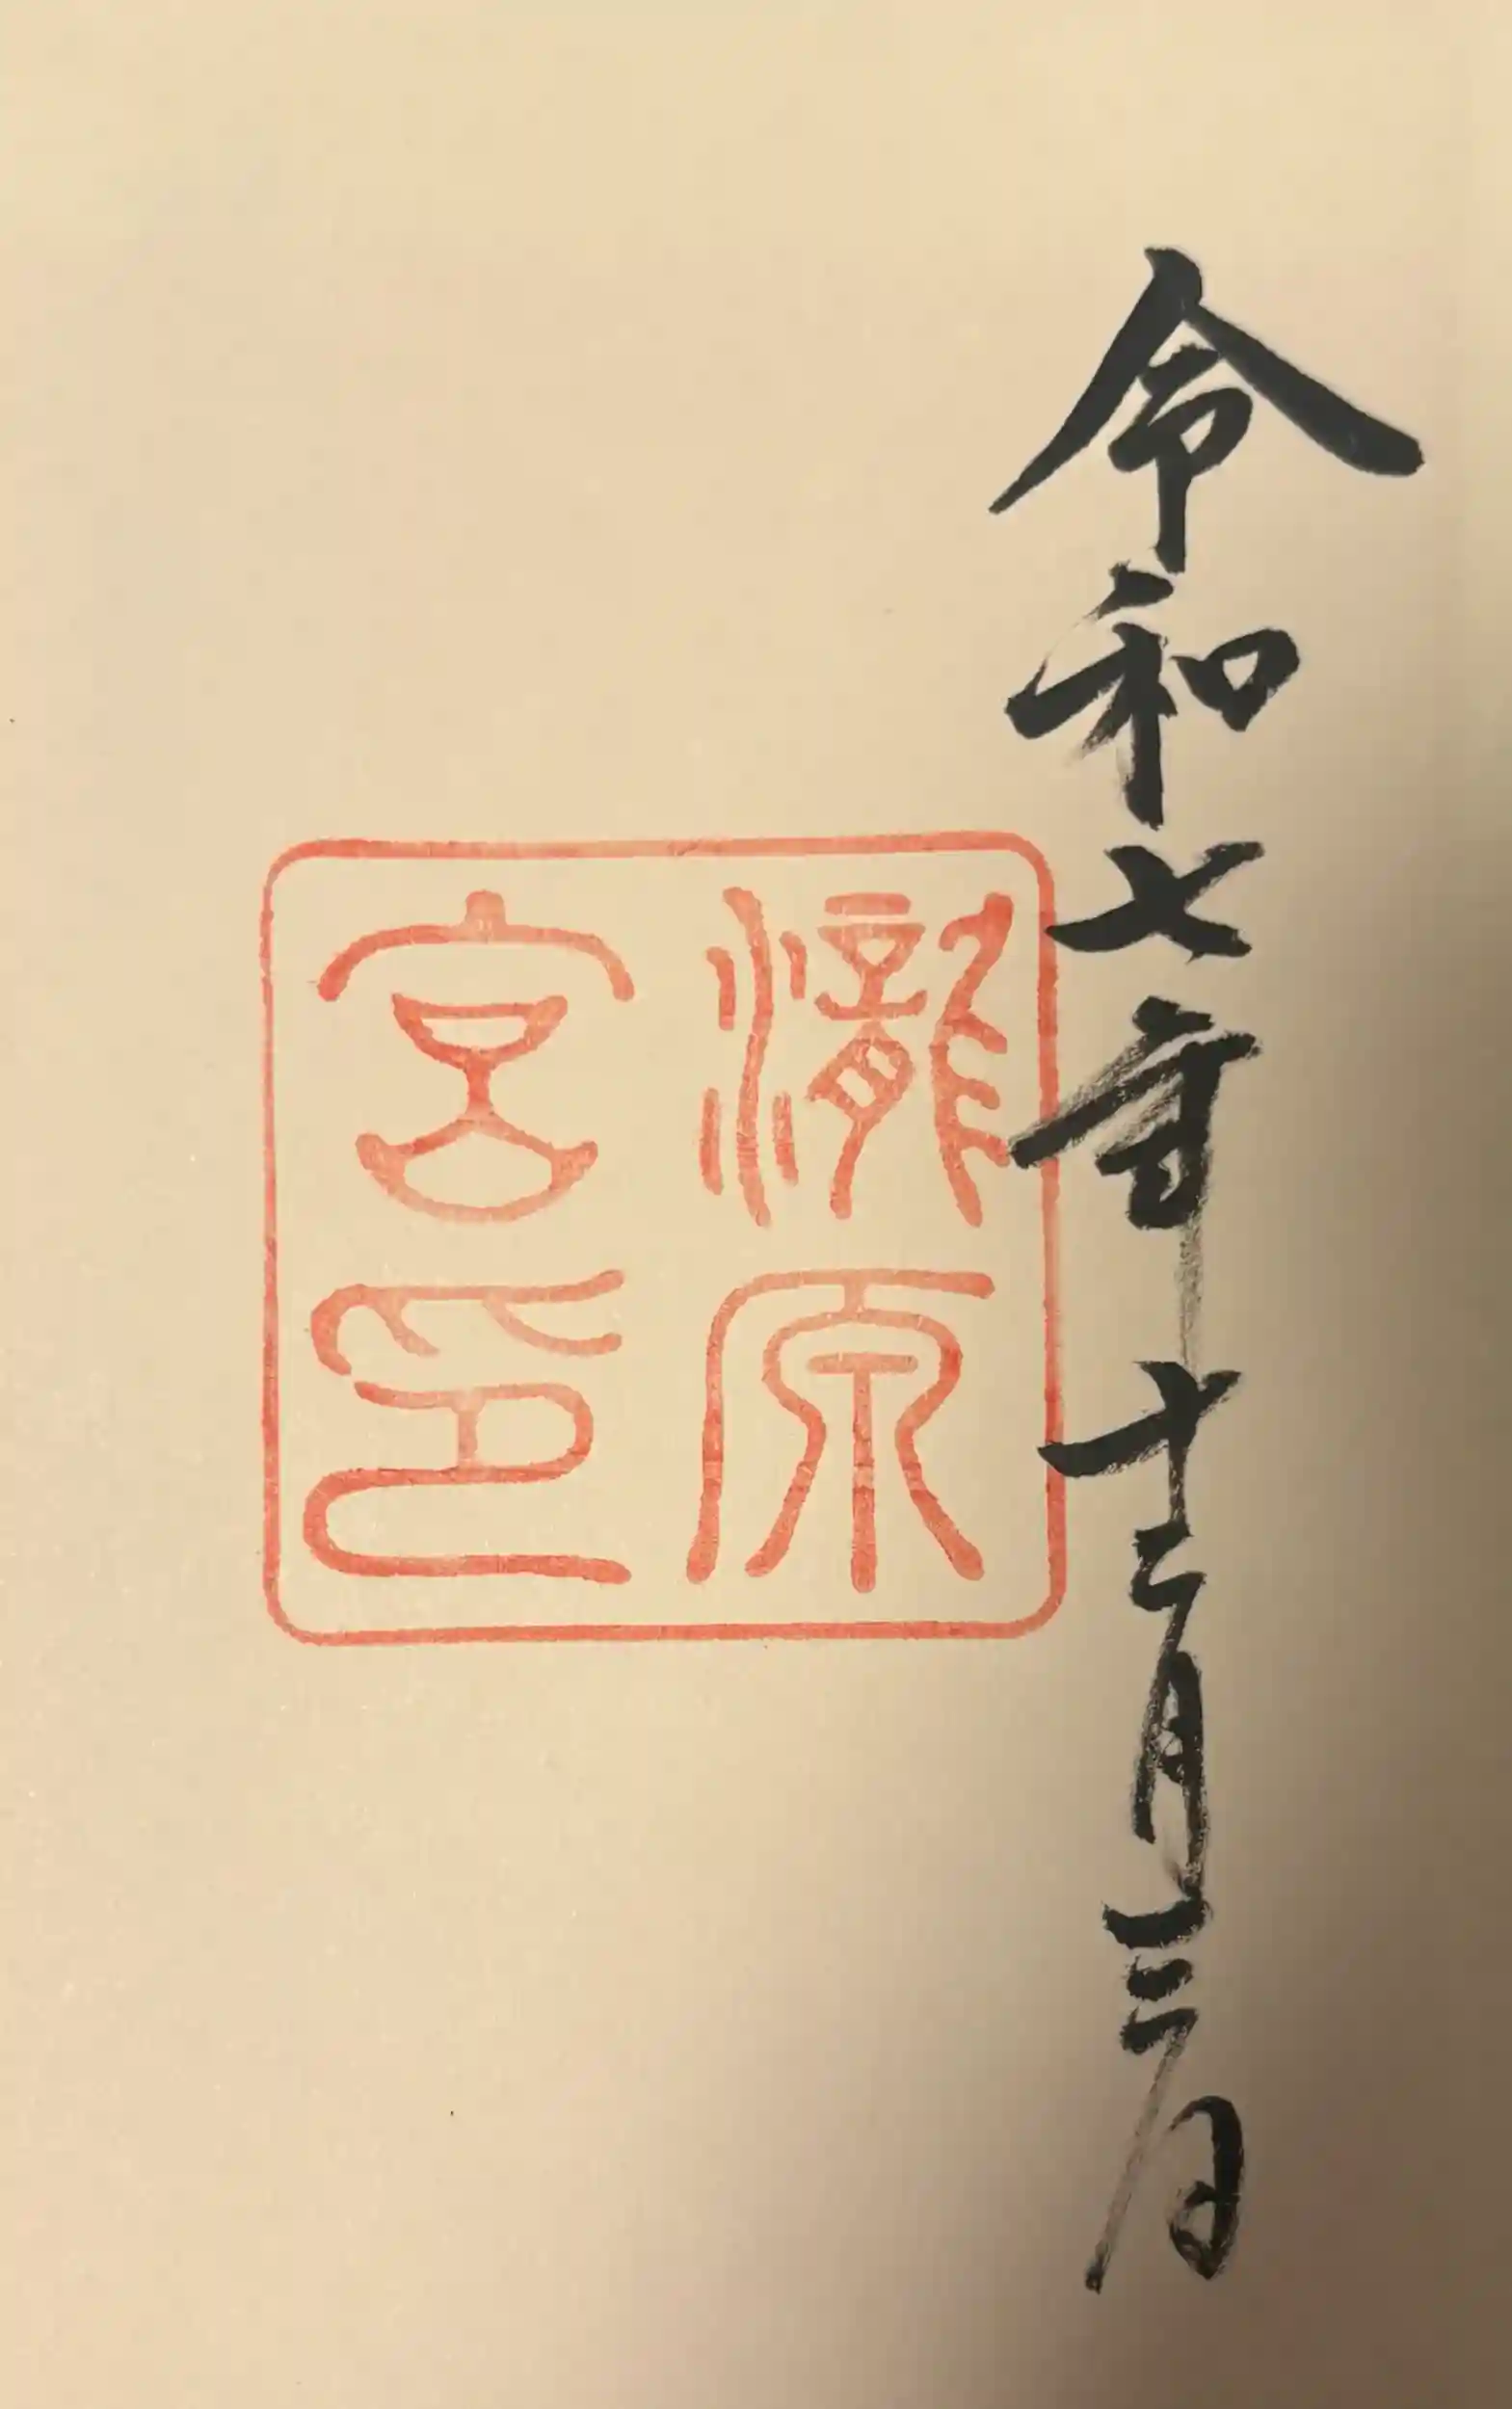 令和七年十二月三日
瀧原
宮印